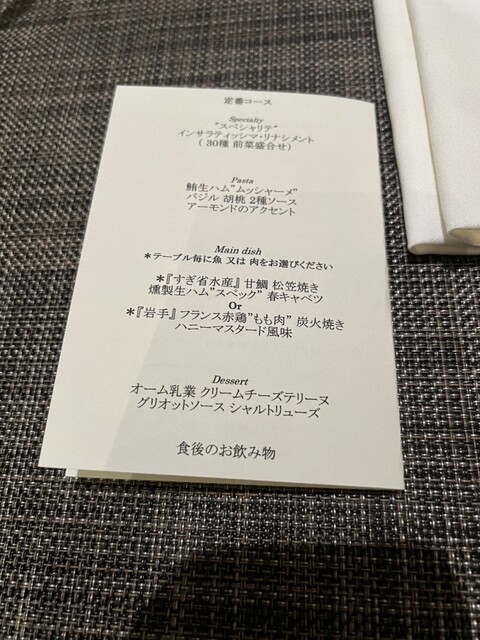 定番コース
Specialty
"スペシャリテ"
インサラティッシマ・リナシメント
( 30種 前菜盛合せ)
Pasta
鮪生ハム"ムッシャーメ"
バジル 胡桃 2種ソース
アーモンドのアクセント
Main dish
*テーブル毎に魚 又は 肉をお選びください
*『すぎ省水産』甘鯛 松笠焼き
燻製生ハム"スペック" 春キャベツ
Or
*『岩手』フランス赤鶏"もも肉" 炭火焼き
ハニーマスタード風味
Dessert
オーム乳業 クリームチーズテリーヌ
グリオットソース シャルトリューズ
食後のお飲み物